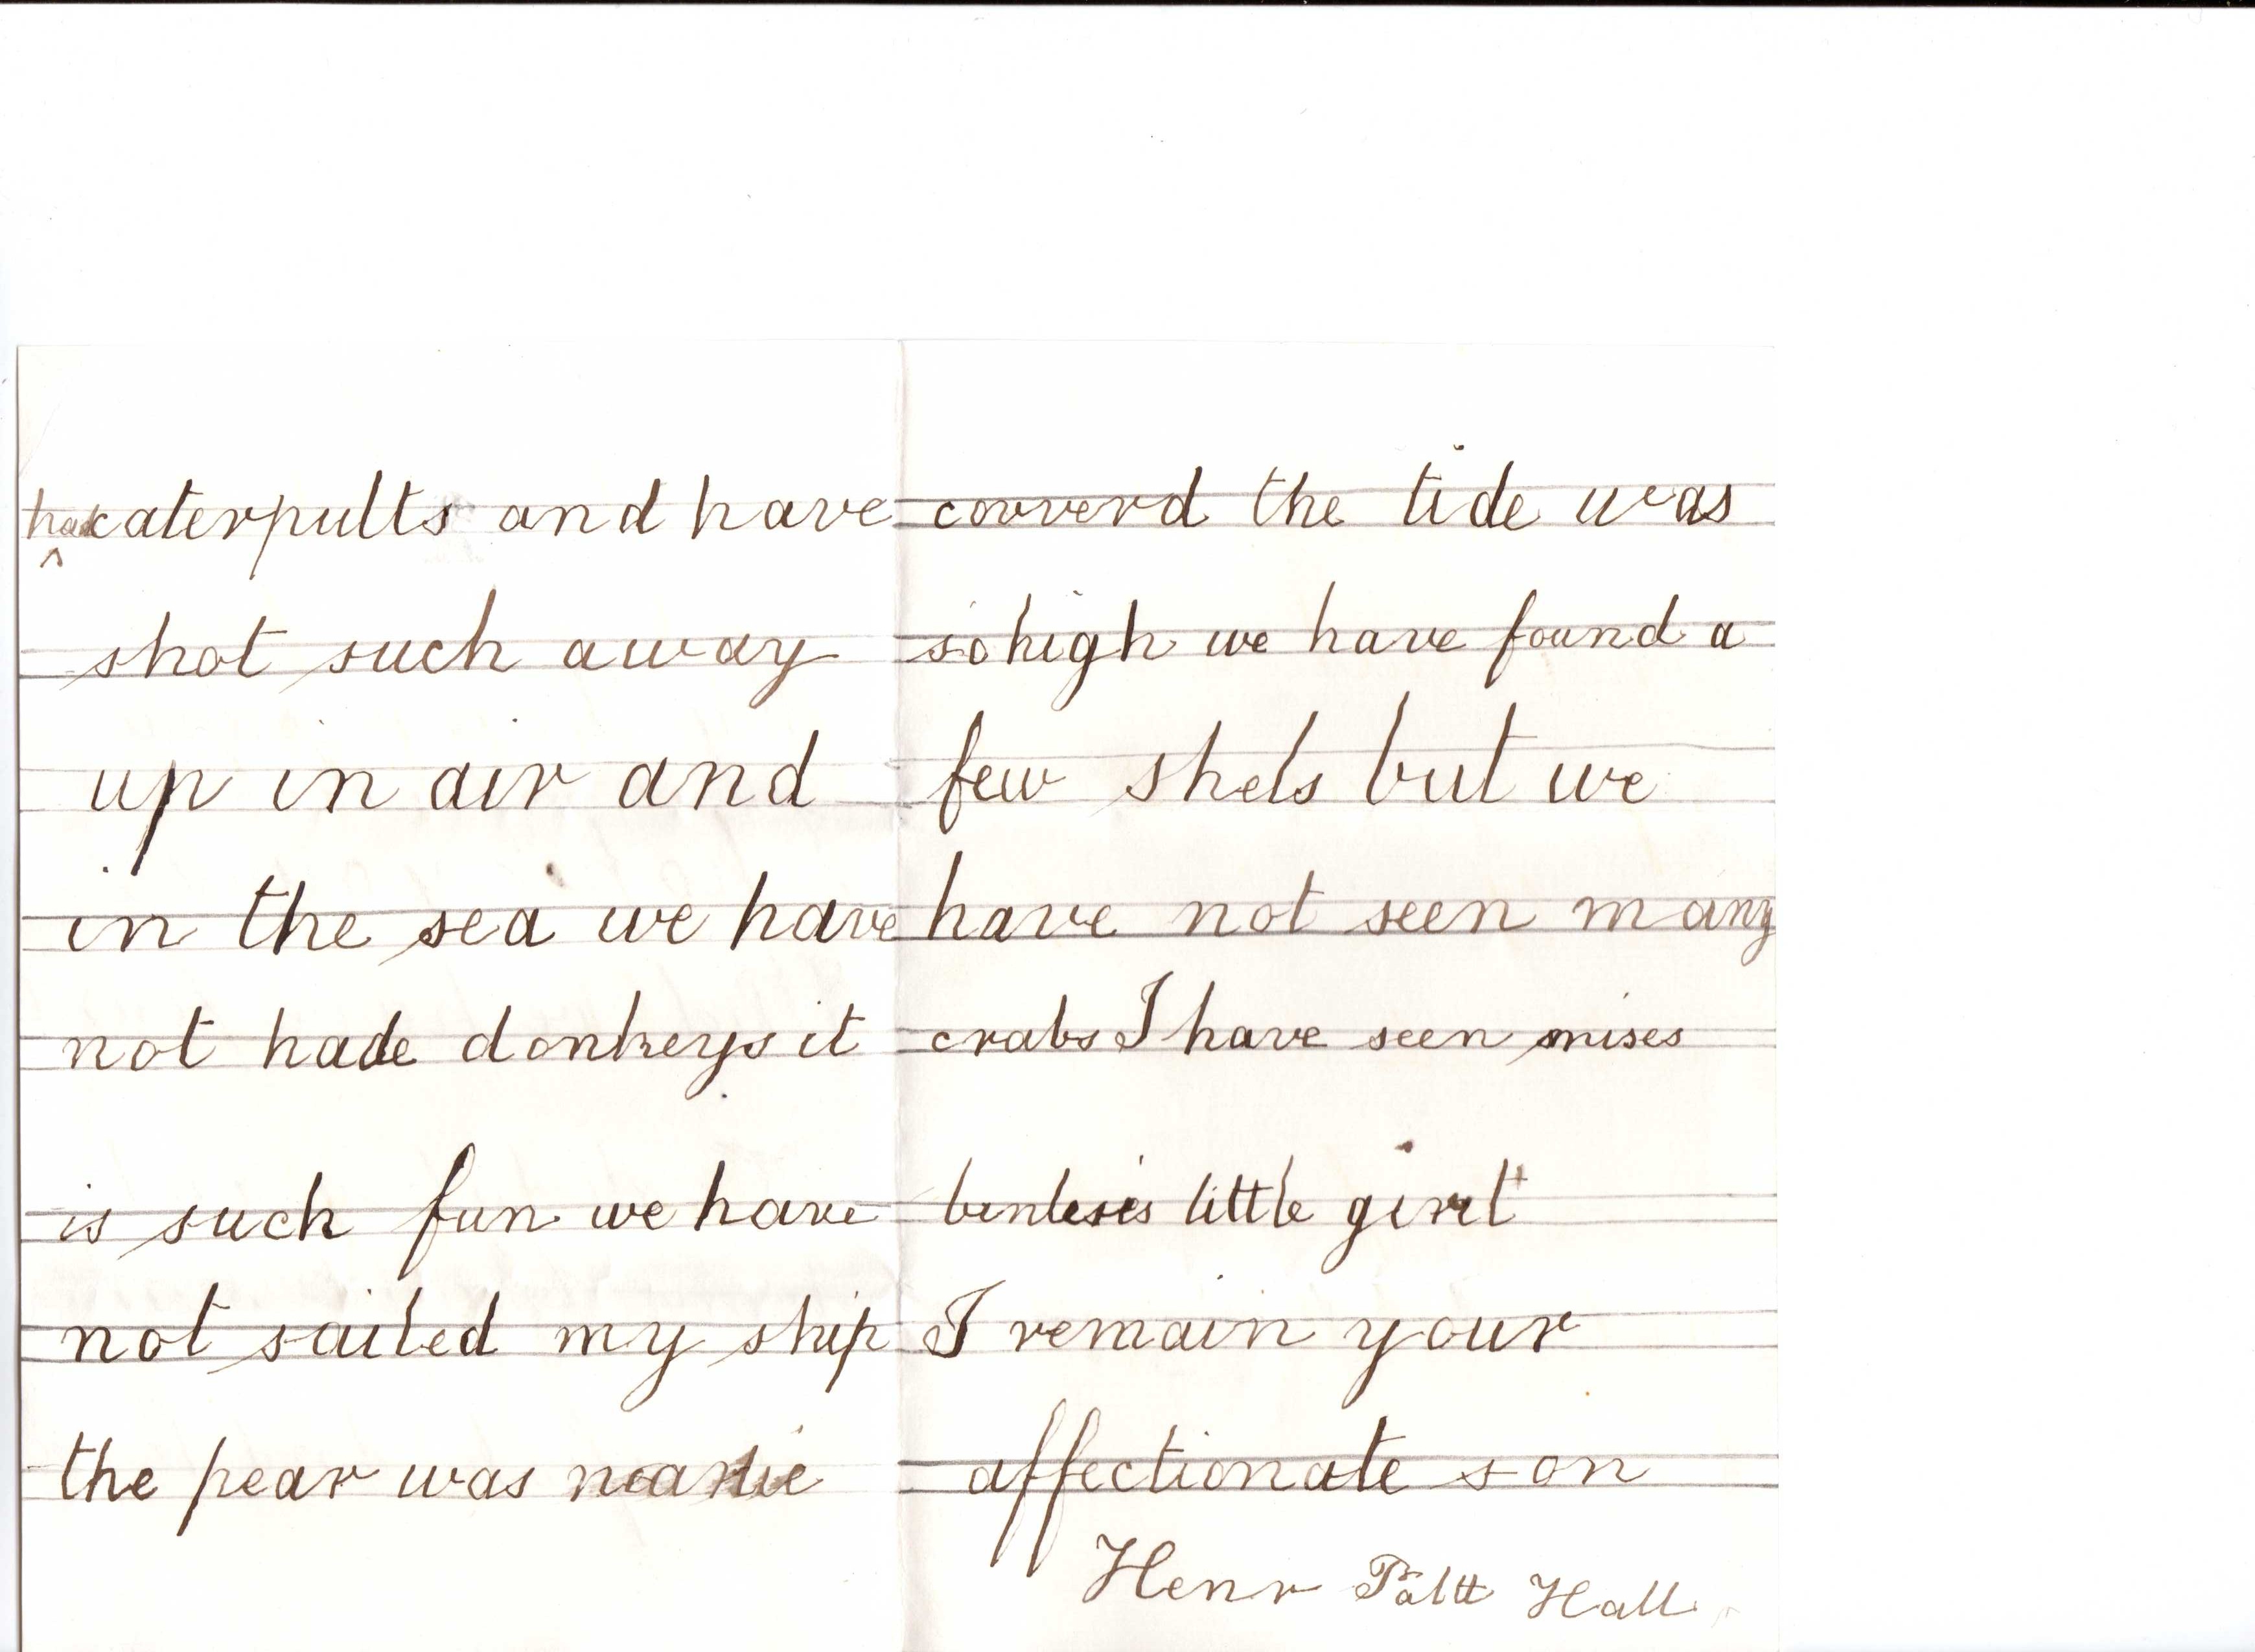 had caterpults and have
shot such away
up in air and
in the sea we have
not hade donkeys it
is such fun we have
not sailed my ship
the pear was
corverd the tide was
so high we have found a
few shels but we
have not seen many
crabs I have seen mises
little girl
I remain your
affectionate son
Henr Paltt Hall